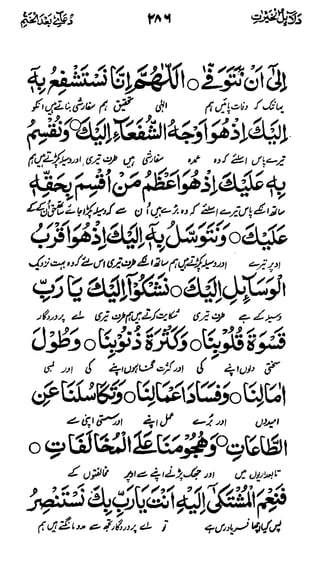 دلائل الخیرات ۲۸۶ دعائے بعد الختم
اِلٰى اَنْ نَتَوَفّٰى ○ اَللّٰهُمَّ اِنَّا نَسْتَشْفِعُ بِهٖ
یہانتک کہ وفات پائیں ہم الٰہی تحقیق ہم سفارشی بناتے ہیں انکو
اِلَيْكَ اِذْ هُوَ اَوْجَهُ الشُّفَعَآءِ اِلَيْكَ ○ وَنُقْسِمُ
تیرے پاس اسلئے کہ وہ عمدہ سفارشی ہیں طرف تیری
بِهٖ عَلَيْكَ اِذْ هُوَ اَعْظَمُ مَنْ اُقْسِمَ بِحَقِّهٖ
ساتھ انکے پاس تیرے اسلئے کہ وہ بڑے ہیں اُن سے کہ
عَلَيْكَ ○ وَنَتَوَسَّلُ بِهٖ اِلَيْكَ اِذْ هُوَ اَقْرَبُ
اوپر تیرے اور وسیلہ پکڑتے ہیں ہم ساتھ انکے طرف تیری اس لئے کہ وہ بہت نزدیک
الْوَسَآئِلِ اِلَيْكَ ○ نَشْكُوْا اِلَيْكَ يَا رَبِّ
وسیلہ کے ہے طرف تیری شکایت کرتے ہیں ہم طرف تیری اے پروردگار
قَسْوَةَ قُلُوْبِنَا ○ وَكَثْرَةَ ذُنُوْبِنَا ○ وَطُوْلَ
سختی دلوں اپنے کی اور کثرت گناہوں اپنے کی اور لمبی
اٰمَالِنَا ○ وَفَسَادَ اَعْمَالِنَا ○ وَتَكَاسُلَنَا عَنِ
امیدیں اور بُرے عمل اپنے اور سستی اپنی سے
الطَّاعَاتِ ○ وَهُجُوْمَنَا عَلَى الْمُخَالَفَاتِ ○
تابعداریوں میں اور جھک پڑنے اپنے سے اوپر مخالفتوں کے
فَنِعْمَ الْمُشْتَكٰى اِلَيْهِ اَنْتَ يَا رَبِّ بِكَ نَسْتَنْصِرُ
پس کیا اچھا فریادرس ہے تو اے پروردگار تجھ سے مدد مانگتے ہیں ہم